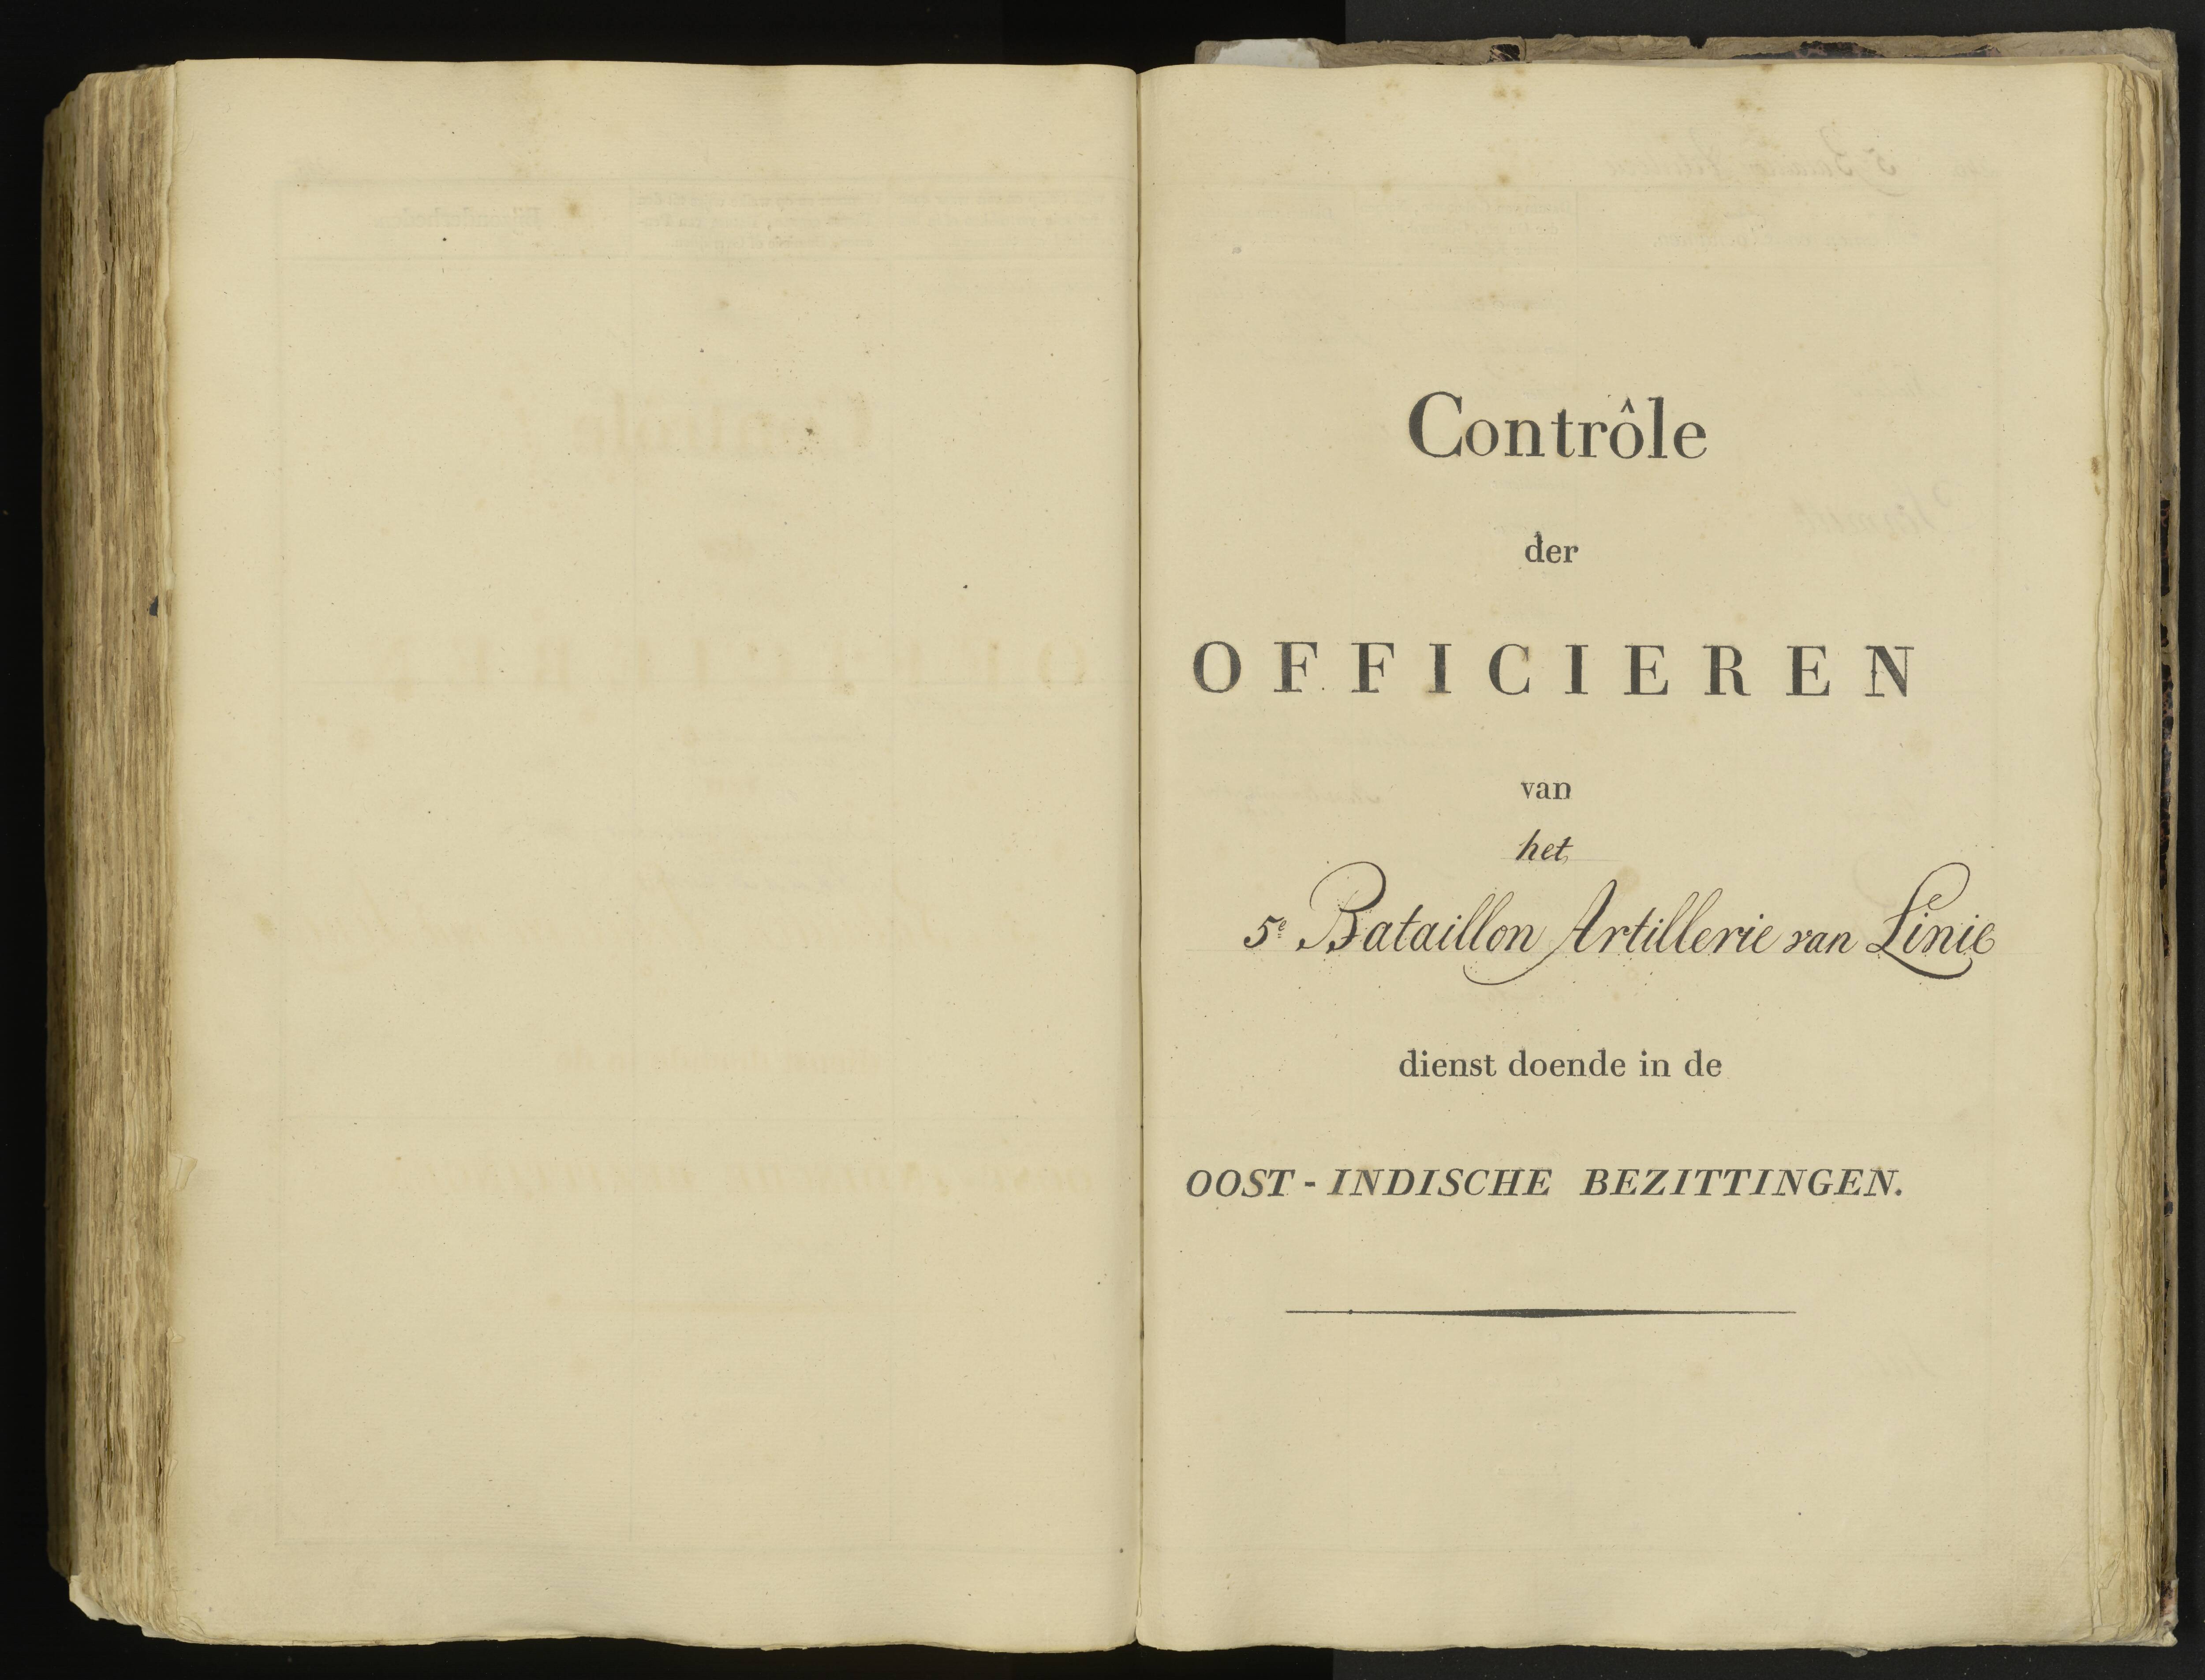 Contrôle
der
OFFICIEREN
van
het
5e Bataillon Artillerie van Linie
dienst doende in de
OOST-INDISCHE BEZITTINGEN.